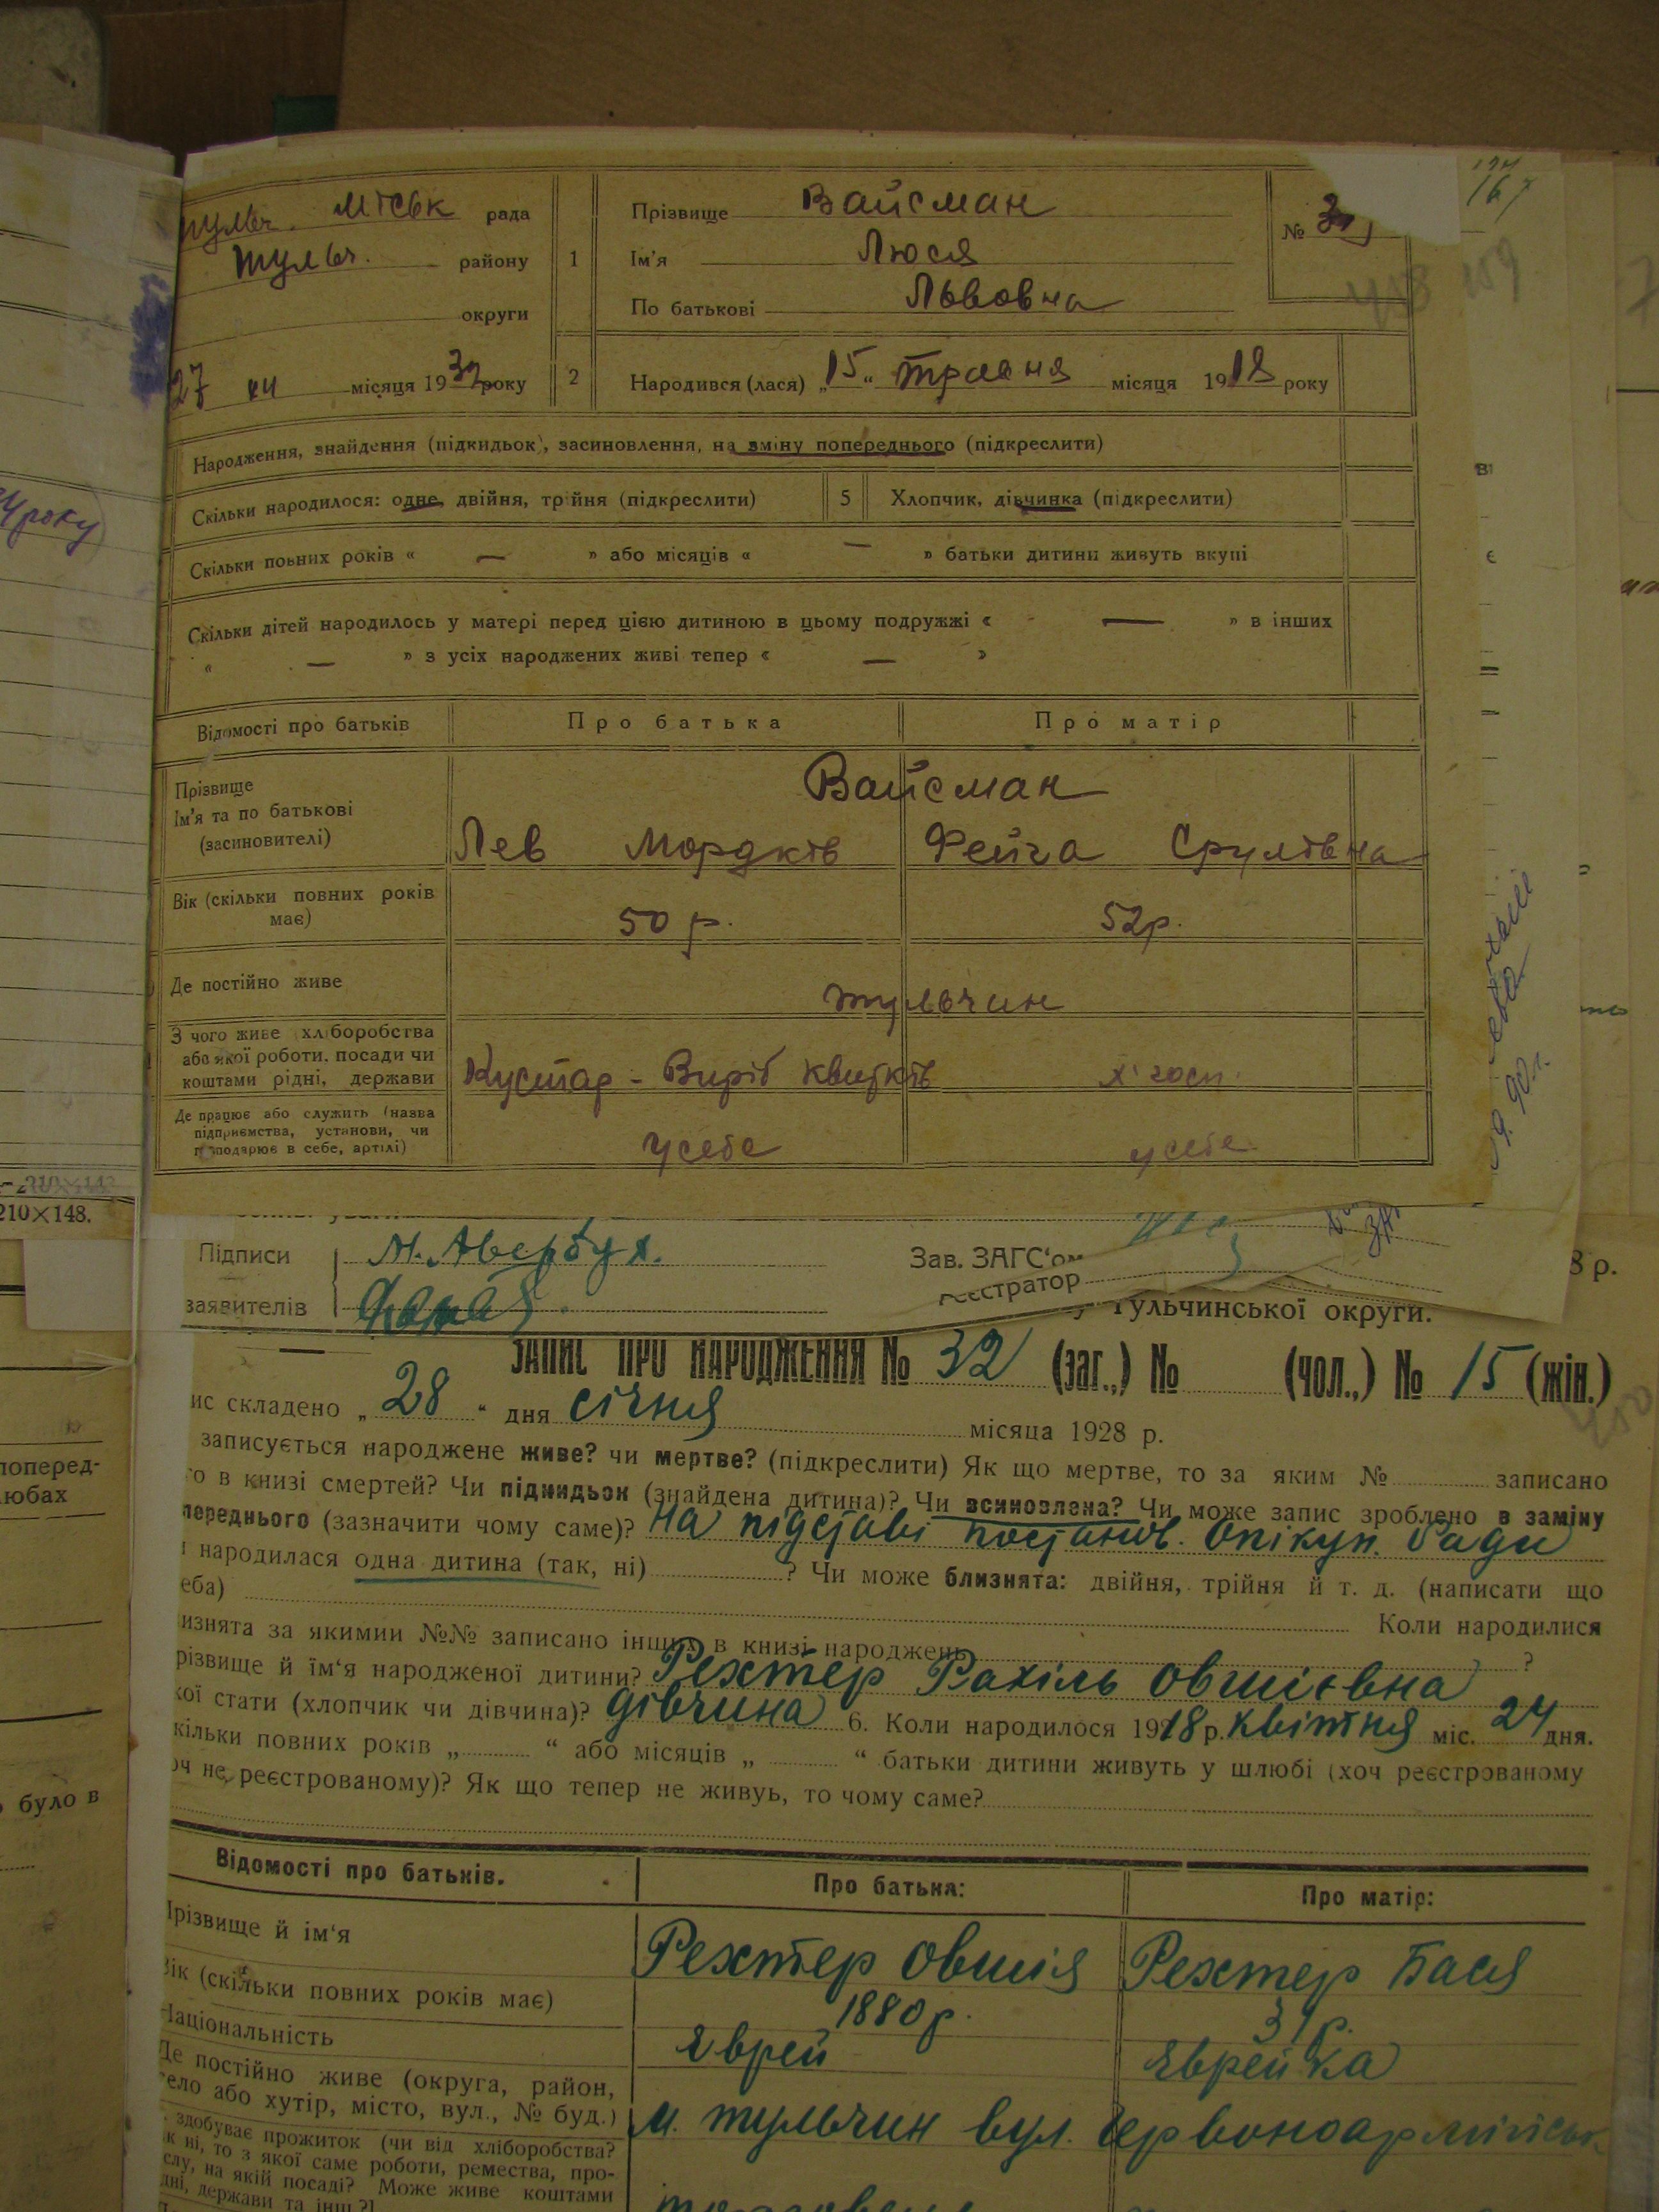 міськ рада
Прізвище Вайсман
№
167
Тульч. району
1
Ім'я Люся
округи
По батькові Львовна
27 місяця 1932 року
2
Народився (лася) „15“ травня місяця 1918 року
Народження, знайдення (підкидьок), засиновлення, на зміну попереднього (підкреслити)
Скільки народилося: одне, двійня, трійня (підкреслити)
5
Хлопчик, дівчинка (підкреслити)
Скільки повних років « — » або місяців « — » батьки дитини живуть вкупі
Скільки дітей народилось у матері перед цією дитиною в цьому подружжі « — » в інших
« — » з усіх народжених живі тепер « — »
Відомості про батьків
Про батька
Про матір
Прізвище
Ім'я та по батькові
(засиновителі)
Вайсман
Лев Мордків
Фейга Срулівна
Вік (скільки повних років
має)
50 р.
52 р.
Де постійно живе
Тульчин
З чого живе хліборобства
або якої роботи. посади чи
коштами рідні, держави
Кустар - Виріб квитків
х. госп.
Де працює або служить (назва
підприємства, установи, чи
господарює в себе, артілі)
у себе
у себе
року)
210×148.
Підписи
заявителів
М. Авербух.
Зав. ЗАГС'ом
реєстратор
8 р.
Тульчинської округи.
ЗАПИС ПРО НАРОДЖЕННЯ № 32 (заг.,) № (чол.,) № 15 (жін.)
ис складено „28“ дня січня місяца 1928 р.
записується народжене живе? чи мертве? (підкреслити) Як що мертве, то за яким № записано
го в книзі смертей? Чи підкидьок (знайдена дитина)? Чи всиновлена? Чи може запис зроблено в заміну
переднього (зазначити чому саме)? На підставі постанов. Опікун. Ради
народилася одна дитина (так, ні) ? Чи може близнята: двійня, трійня й т. д. (написати що
еба) Коли народилися
изнята за якимии №№ записано інших в книзі народжень ?
різвище й їм‘я народженої дитини? Рехтер Рахіль Овшієвна
кої стати (хлопчик чи дівчина)? дівчина 6. Коли народилося 1918 р. квітня міс. 24 дня.
кільки повних років „ “ або місяців „ “ батьки дитини живуть у шлюбі (хоч реєстрованому
оч не реєстрованому)? Як що тепер не живуь, то чому саме?
Відомості про батьків.
Про батька:
Про матір:
Прізвище й ім‘я
Рехтер Овшія
Рехтер Бася
Вік (скільки повних років має)
1880 р.
31 р.
Національність
Яврей
Яврейка
Де постійно живе (округа, район,
село або хутір, місто, вул., № буд.)
м. Тульчин вул. Червоноармійськ
здобуває прожиток (чи від хліборобства?
к ні, то з якої саме роботи, ремества, про-
слу, на якій посаді? Може живе коштами
дні, держави та інш.?)
поперед-
любах
було в